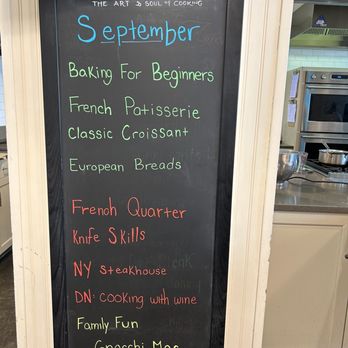 THE ART & SOUL of COOKING
September
Baking For Beginners
French Patisserie
Classic Croissant
European Breads
French Quarter
Knife Skills
NY Steakhouse
DN: cooking with wine
Family Fun
Gnocchi Mac